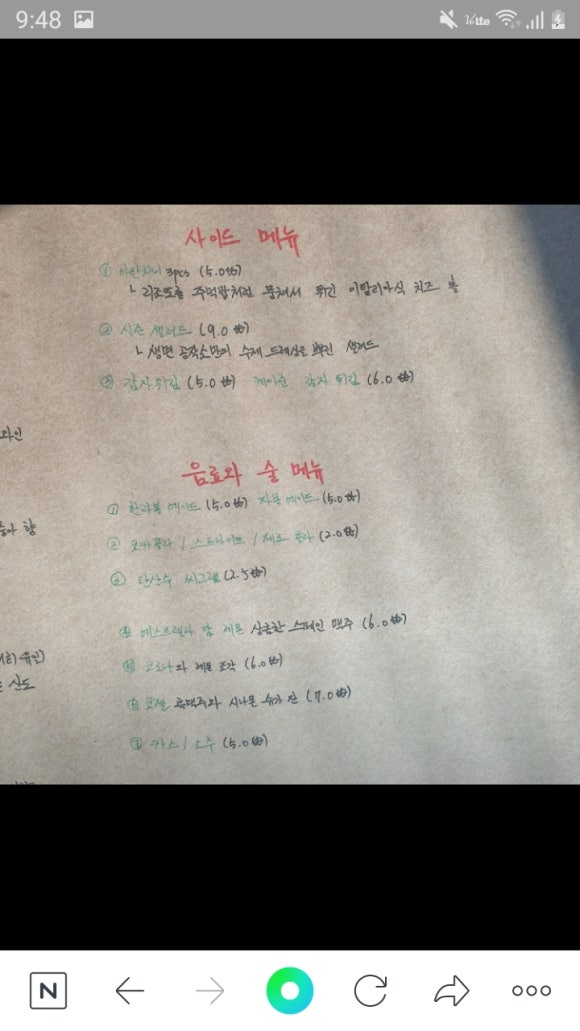 9:48
사이드 메뉴
① 아란치니 3pcs (5.0₩)
ㄴ 리조또를 주먹밥처럼 뭉쳐서 튀긴 이탈리아식 치즈 볼
② 시즌 샐러드 (9.0₩)
ㄴ 생면 공작소만의 수제 드레싱을 뿌린 샐러드
③ 감자튀김 (5.0₩) 케이준 감자 튀김 (6.0₩)
와인
음료와 술 메뉴
① 한라봉 에이드 (5.0₩) 자몽에이드 (5.0₩)
향
② 코카콜라 / 스프라이트 / 제로 콜라 (2.0₩)
③ 탄산수 씨그램 (2.5₩)
④ 에스트렐라 담 레몬 상큼한 스페인 맥주 (6.0₩)
⑤ 코로나와 레몬 조각 (6.0₩)
신도
⑥ 코젤 흑맥주와 시나몬 슈가 잔 (7.0₩)
⑦ 카스 / 소주 (5.0₩)
N